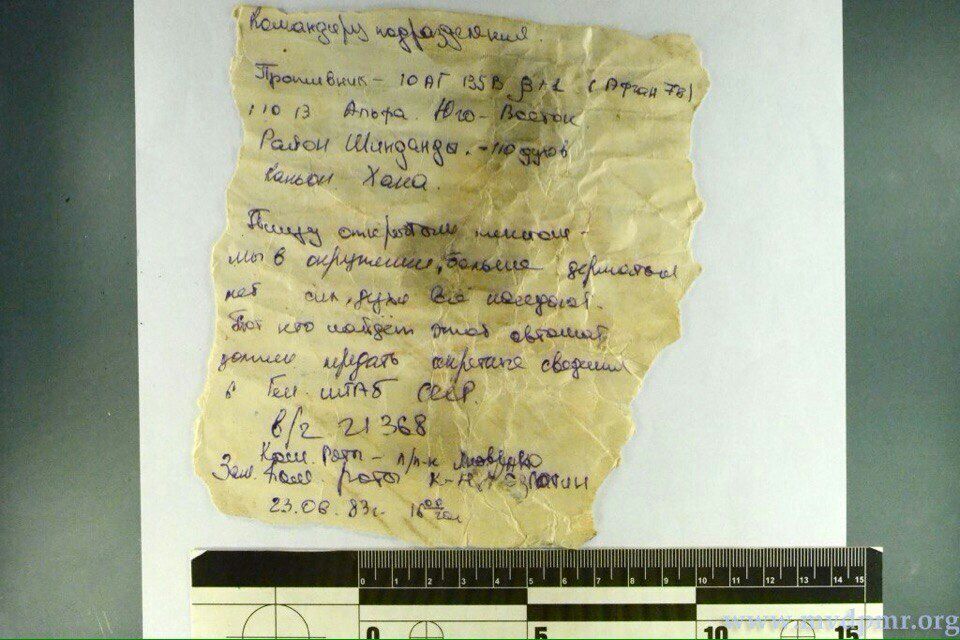 Командиру подразделения.
Противник - 10 АГ 135В (Афган 78)
110 13 Альфа. Юго-Восток
Район Шинданды. - 110 духов
Каньон Хана.
Пишу открытым текстом -
мы в окружении, больше держаться
нет сил, духи все наседают.
Тот кто найдёт этот автомат
должен передать секретные сведения
в Ген. штАБ СССР.
в/ч 21368
Ком. Роты - п/п-к
Зам. Ком. роты к-н
23.06.83г. 16 00
0 1 2 3 4 5 6 7 8 9 10 11 12 13 14 15
0 5 10 15
www.mvdpmr.org